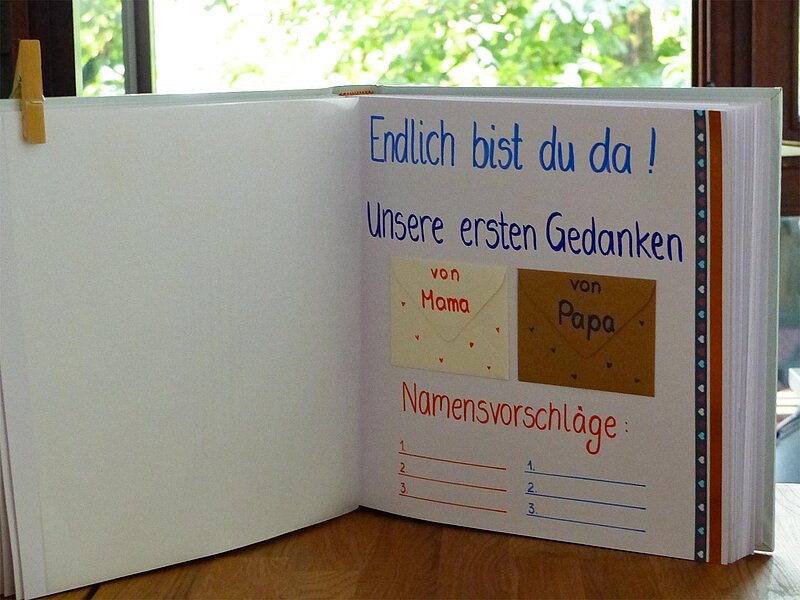 Endlich bist du da !
Unsere ersten Gedanken
von
Mama
von
Papa
Namensvorschläge :
1.
2.
3.
1.
2.
3.